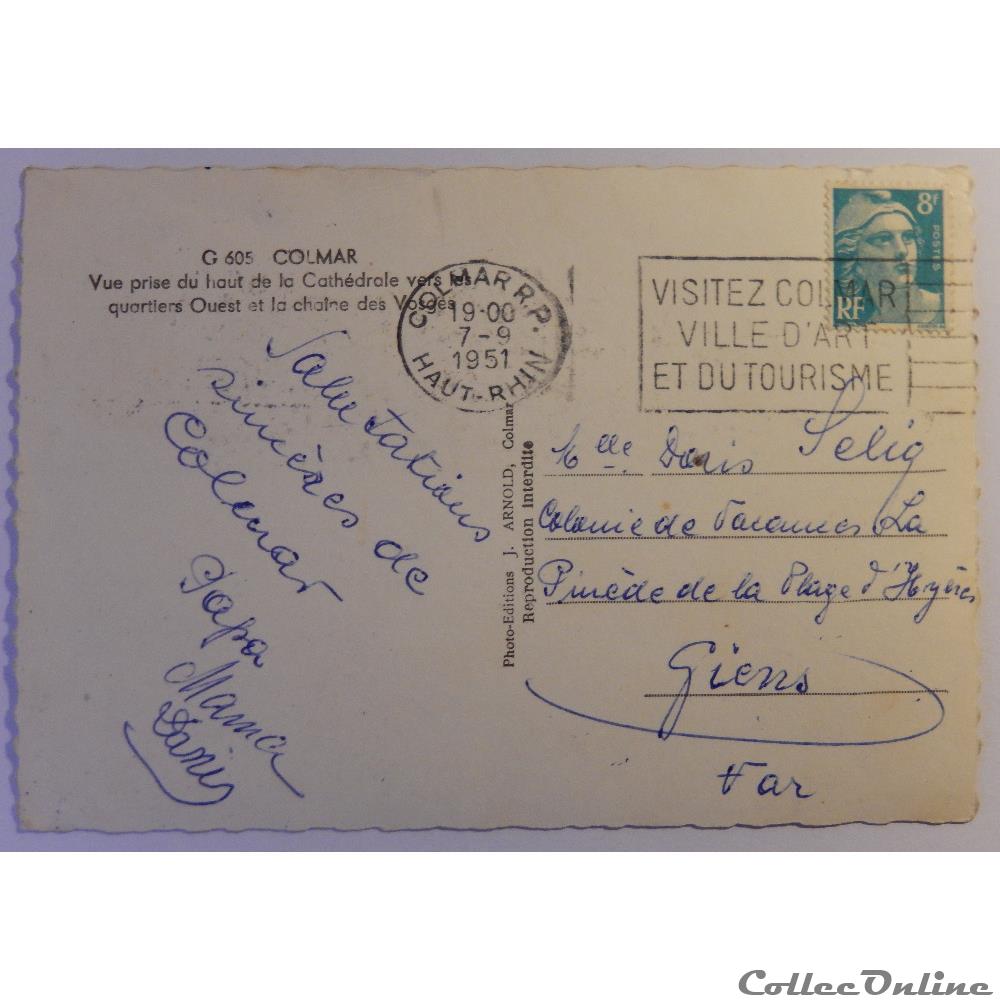 G 605 COLMAR
Vue prise du haut de la Cathédrale vers les
quartiers Ouest et la chaîne des Vosges
COLMAR R.P.
19-00
7-9
1951
HAUT-RHIN
VISITEZ COLMAR
VILLE D'ART
ET DU TOURISME
8F
POSTES
RF
Salutations
sincères de
Colmar
Papa
Mama
Photo-Editions J. ARNOLD, Colmar
Reproduction interdite
Mlle. Doris Selig
Colonie de Vacances La
Pinède de la Plage d'Hyères
Giens
Var
CollecOnline